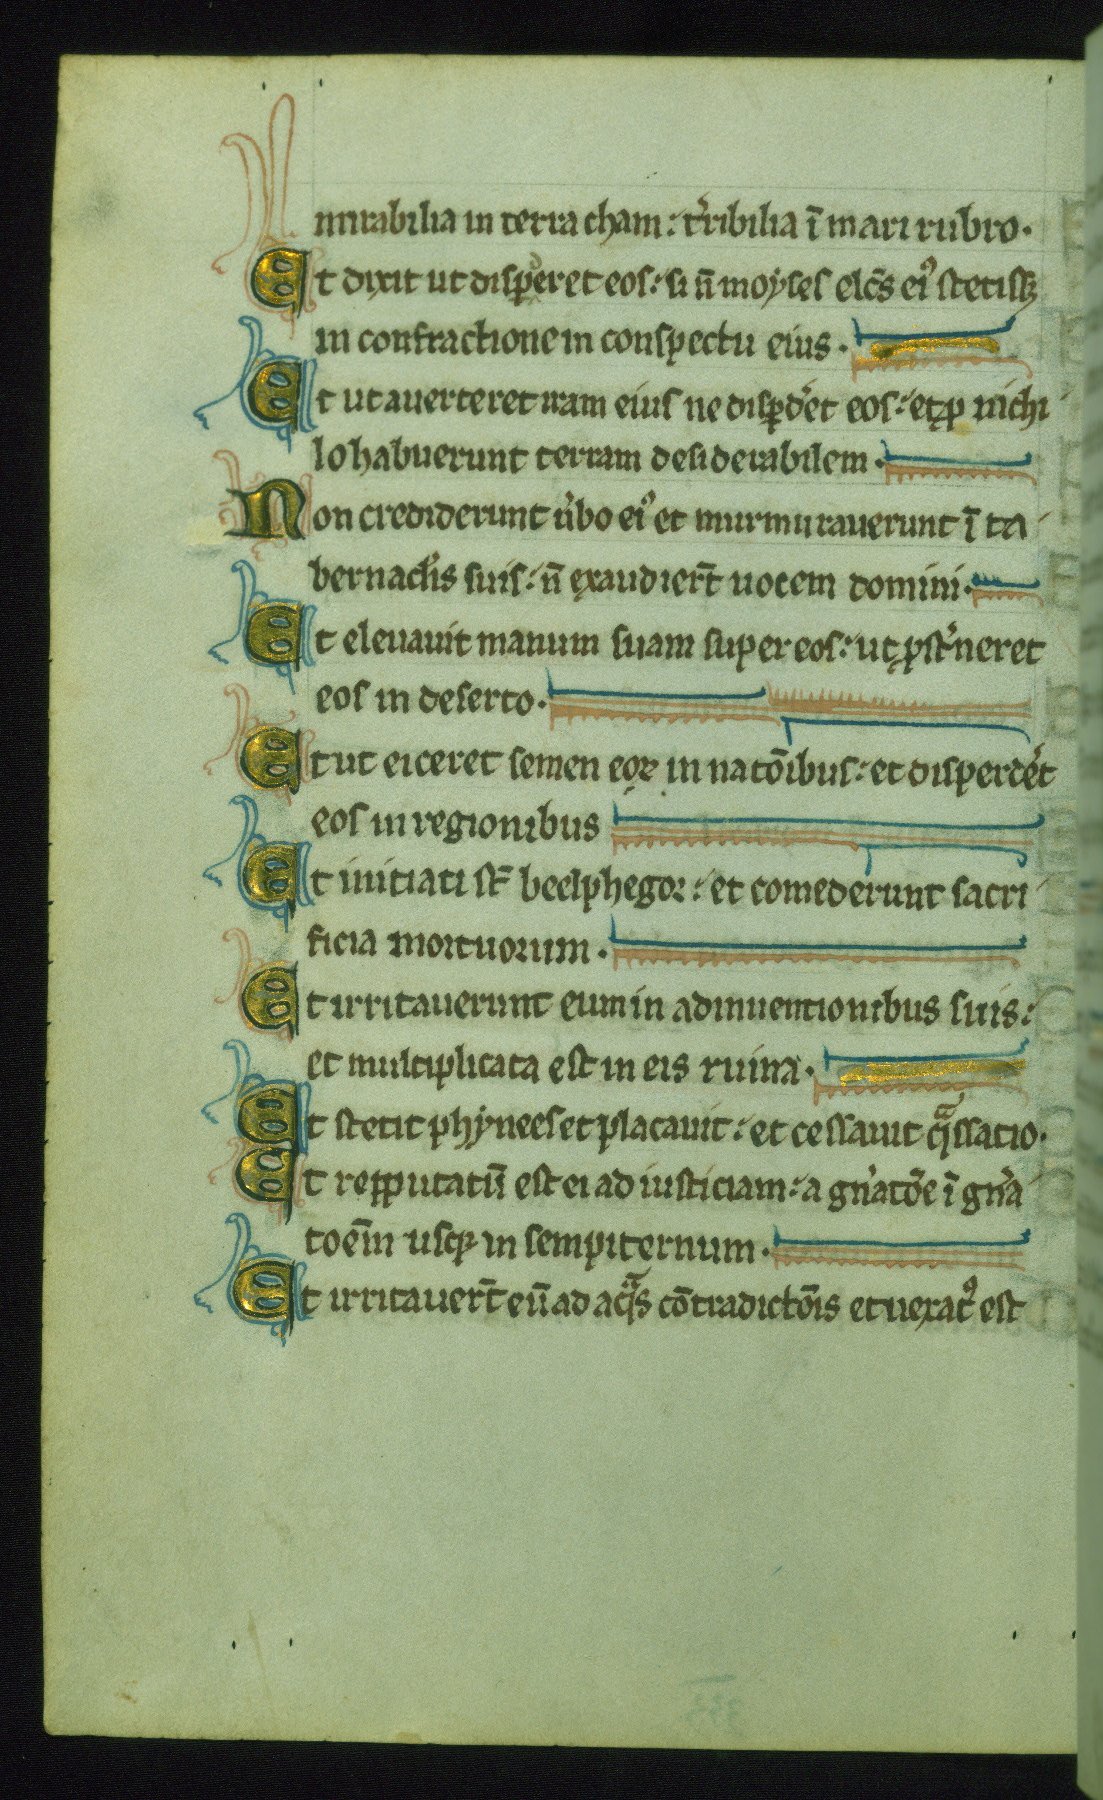 mirabilia in terra cham: t̾ribilia ī mari rubro.
Et dixit ut disꝑderet eos: si n̄ moyses elc̄s ei⁹ stetissꝫ
in confractione in conspectu eius.
Et ut auerteret iram eius ne disꝑd̾et eos: et ꝓ nichi
lo habuerunt terram desiderabilem.
Non crediderunt u̾bo ei⁹ et murmurauerunt ī ta
bernacl̾is suis: n̄ exaudier̄t uocem domini.
Et eleuauit manum suam super eos: ut ꝓst̾neret
eos in deserto.
Et ut eiceret semen eoꝝ in natōibus: et disperd̾et
eos in regionibus
Et initiati st̄ beelphegor: et comederunt sacri
ficia mortuorum.
Et irritauerunt eum in adinuentionibus suis:
et multiplicata est in eis ruina.
Et stetit phynees et placauit: et cessauit qᵃssatio.
Et repputatū est ei ad iusticiam: a gn̾atōe ī gn̾a
toēm usqꝫ in sempiternum.
Et irritauer̄t eū ad aqᵃs cōtradictōis et uexat⁹ est